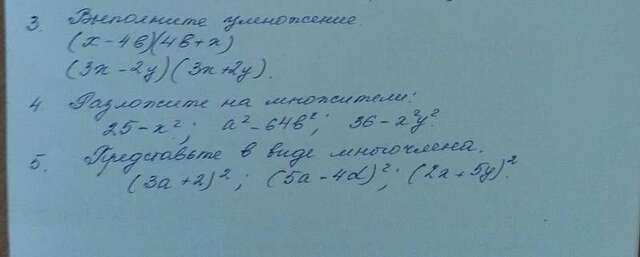 3. Выполните умножение.
(x-4в)(4в+x)
(3x-2y)(3x+2y).
4. Разложите на множители:
25-x²; a²-64в²; 36-x²y².
5. Представьте в виде многочлена.
(3a+2)²; (5a-4d)²; (2x+5y)².